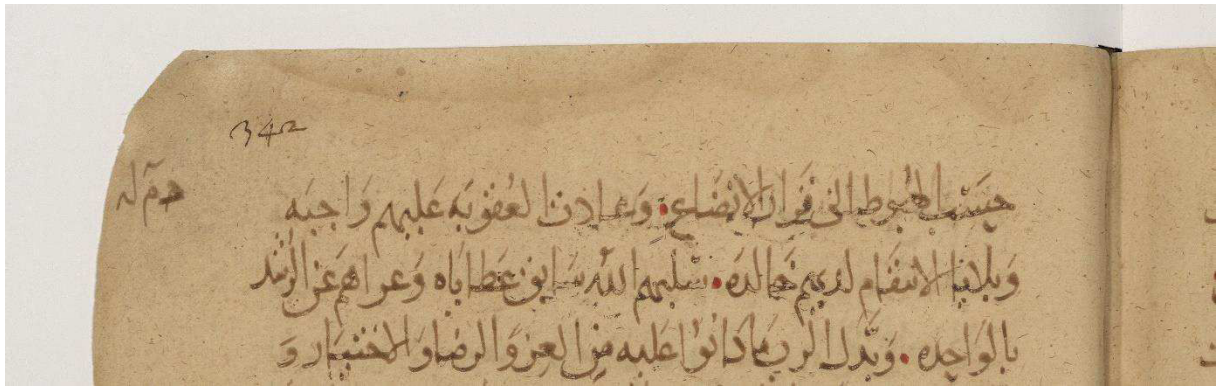 342
حسب الهبوط الى قرار الاتضاع. وعادت العقوبه عليهم واجبه
وبلايا الانتقام لديهم خالده. سلبهم الله سابق عطاياه وعراهم عن الرشد
بالواحده. وبدل الرب ما كانوا عليه من العز والرضا والاختيار و